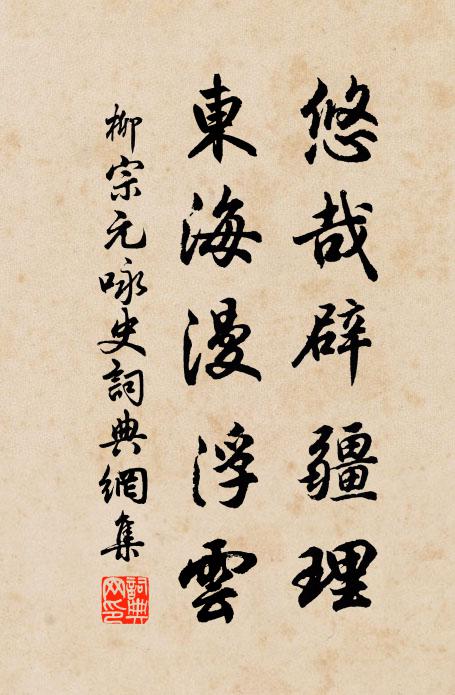 悠哉辟疆理
東海漫浮雲
柳宗元咏史詞典網集
詞典